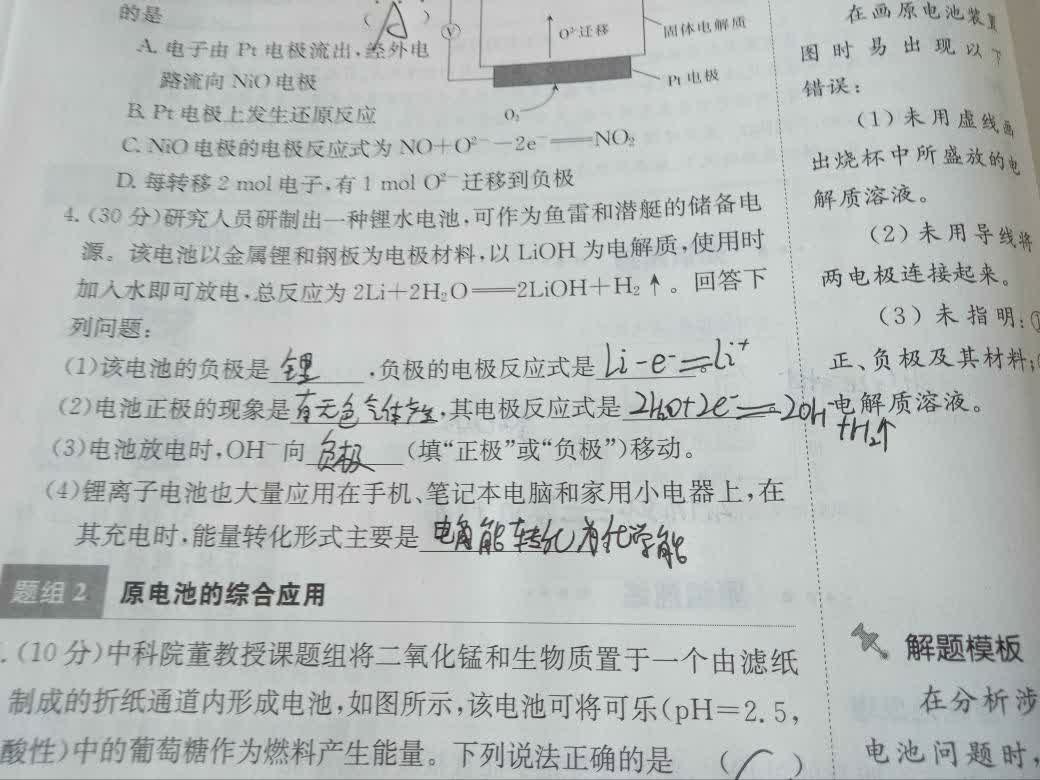 的是
( A )
A. 电子由 Pt 电极流出，经外电
路流向 NiO 电极
B. Pt 电极上发生还原反应
C. NiO 电极的电极反应式为 NO+O²⁻－2e⁻══NO₂
D. 每转移 2 mol 电子，有 1 mol O²⁻ 迁移到负极
V
O²⁻迁移
固体电解质
Pt 电极
O₂
4. (30 分)研究人员研制出一种锂水电池，可作为鱼雷和潜艇的储备电
源。该电池以金属锂和钢板为电极材料，以 LiOH 为电解质，使用时
加入水即可放电，总反应为 2Li+2H₂O══2LiOH+H₂↑。回答下
列问题：
(1)该电池的负极是 锂 ，负极的电极反应式是 Li-e⁻=Li⁺ 。
(2)电池正极的现象是 有无色气体产生 ，其电极反应式是 2H₂O+2e⁻=2OH⁻
+H₂↑
(3)电池放电时，OH⁻ 向 负极 (填“正极”或“负极”)移动。
(4)锂离子电池也大量应用在手机、笔记本电脑和家用小电器上，在
其充电时，能量转化形式主要是 电能转化为化学能
题组 2 原电池的综合应用
. (10 分)中科院董教授课题组将二氧化锰和生物质置于一个由滤纸
制成的折纸通道内形成电池，如图所示，该电池可将可乐(pH=2.5，
酸性)中的葡萄糖作为燃料产生能量。下列说法正确的是 ( )
在画原电池装置
图时易出现以下
错误：
(1)未用虚线画
出烧杯中所盛放的电
解质溶液。
(2)未用导线将
两电极连接起来。
(3)未指明：①
正、负极及其材料；
电解质溶液。
解题模板
在分析涉
电池问题时，